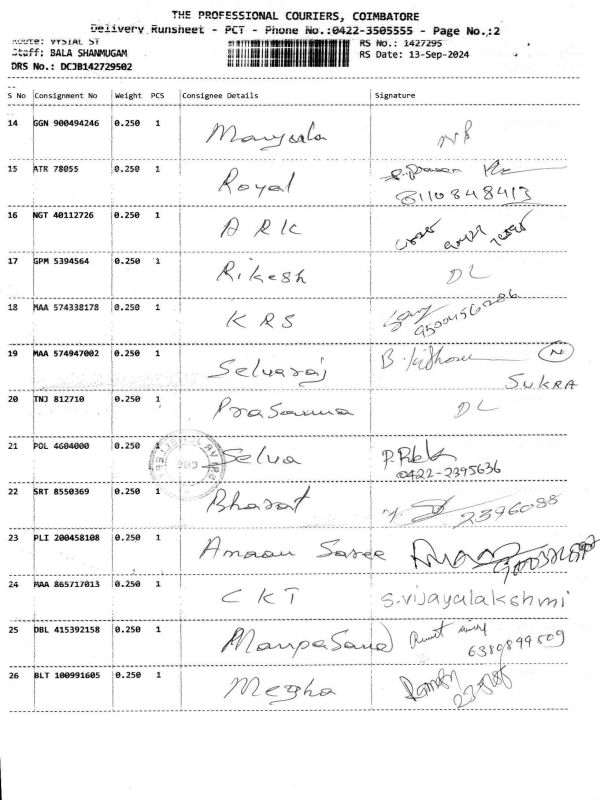 THE PROFESSIONAL COURIERS, COIMBATORE
Delivery Runsheet - PCT - Phone No.:0422-3505555 - Page No.:2
Route: VYSIAL ST
RS No.: 1427295
Staff: BALA SHANMUGAM
RS Date: 13-Sep-2024
DRS No.: DCJB142729502
S No Consignment No Weight PCS Consignee Details Signature
14 GGN 900494246 0.250 1 Manjula
15 ATR 78055 0.250 1 Royal
8110848413
16 NGT 40112726 0.250 1 A R K
17 GPM 5394564 0.250 1 Rikesh DL
18 MAA 574338178 0.250 1 K R S
9500456286
19 MAA 574947002 0.250 1 Selvaraj B. N
SUKRA
20 TNJ 812710 0.250 1 Prasanna DL
21 POL 4604000 0.250 1 Selva
0422-2395636
22 SRT 8550369 0.250 1 Bharat 2396088
23 PLI 200458108 0.250 1 Amaan Saree
24 MAA 865717013 0.250 1 C K T S.vijayalakshmi
25 DBL 415392158 0.250 1 Manpasand
6380899509
26 BLT 100991605 0.250 1 Megha